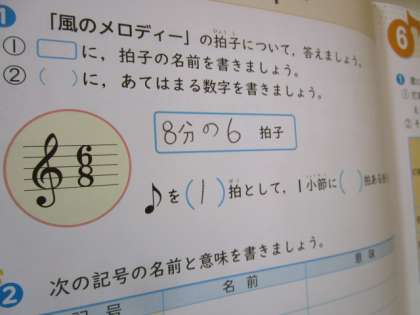 1 「風のメロディー」の拍子について，答えましょう。
① □に，拍子の名前を書きましょう。
② （ ）に，あてはまる数字を書きましょう。
6
8
8分の6 拍子
♪を（1）拍として，1小節に（ ）拍ある
2 次の記号の名前と意味を書きましょう。
記号 名前 意味
6
①
②